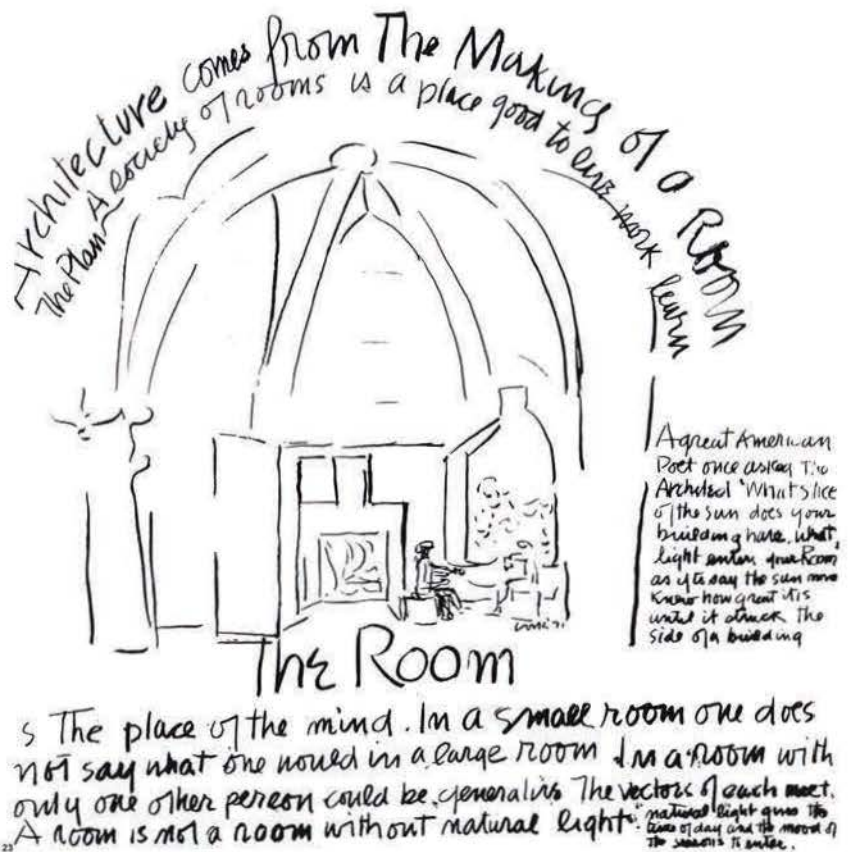 Architecture comes from The Making of a Room
The Plan A society of rooms is a place good to live work learn
A great American
Poet once asked The
Architect 'What slice
of the sun does your
building have, what
light enters your Room'
as if to say the sun never
knew how great it is
until it struck the
side of a building
The Room
s The place of the mind. In a small room one does
not say what one would in a large room In a room with
only one other person could be generative The vectors of each meet.
A room is not a room without natural light.
natural light gives the
time of day and the mood of
the seasons to enter.
23